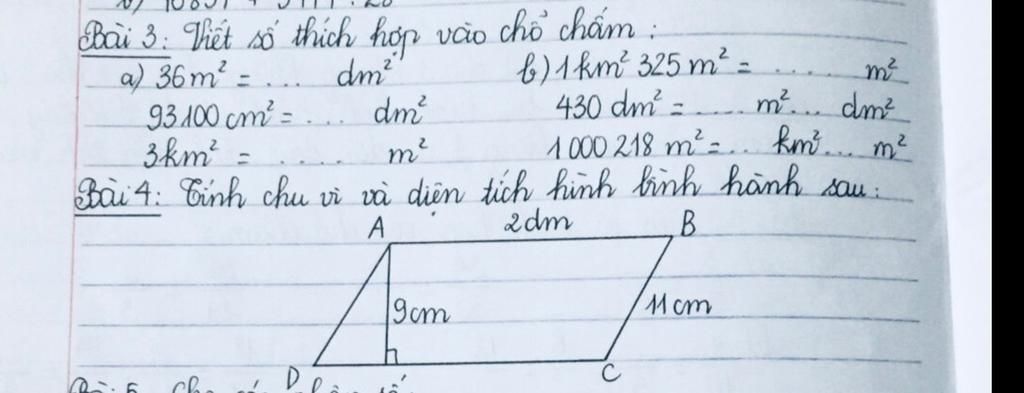 Bài 3: Viết số thích hợp vào chỗ chấm:
a) 36m² = ... dm² b) 1km² 325 m² = ..... m²
93100 cm² = ... dm² 430 dm² = ..... m² ... dm²
3km² = ..... m² 1 000 218 m² = ... km² ... m²
Bài 4: Tính chu vi và diện tích hình bình hành sau:
A 2dm B
9cm 11cm
D C